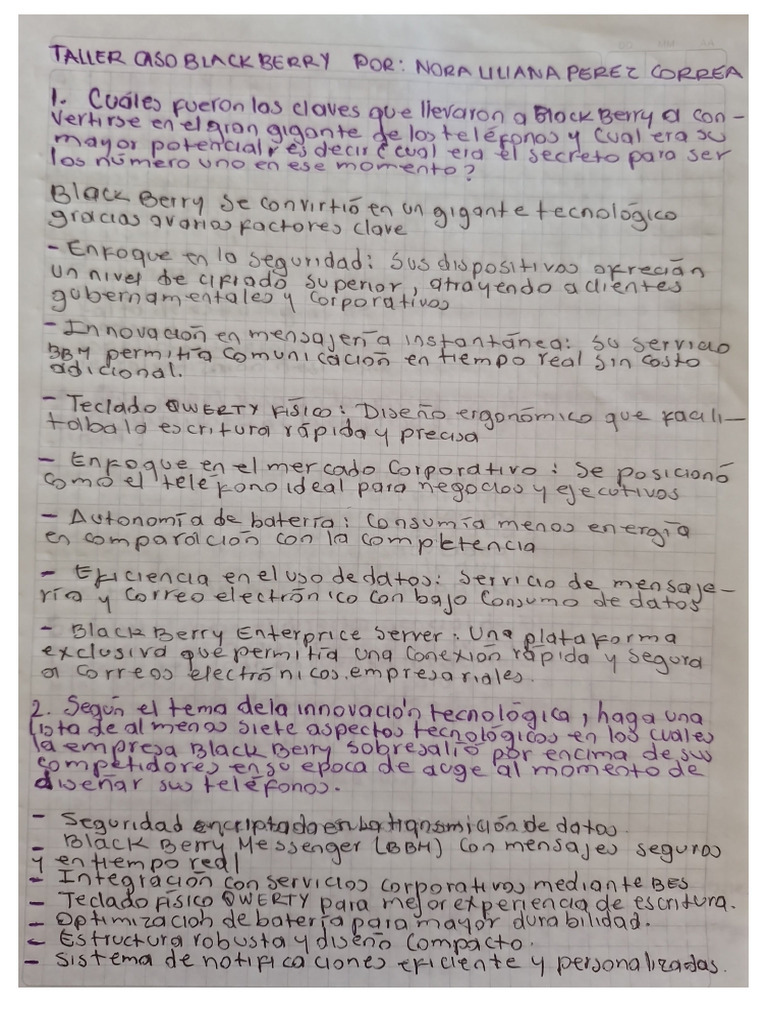 TALLER CASO BLACK BERRY POR: NORA LILIANA PEREZ CORREA
1. Cuáles fueron las claves que llevaron a Black Berry a con-
vertirse en el gran gigante de los teléfonos y cual era su
mayor potencial, es decir ¿cual era el secreto para ser
los número uno en ese momento?
Black Berry se convirtió en un gigante tecnológico
gracias a varios factores clave
- Enfoque en la seguridad: Sus dispositivos ofrecían
un nivel de cifrado superior, atrayendo a clientes
gubernamentales y corporativos
- Innovación en mensajería instantánea: su servicio
BBM permitía comunicación en tiempo real sin costo
adicional.
- Teclado QWERTY Físico: Diseño ergonómico que facili-
taba la escritura rápida y precisa
- Enfoque en el mercado corporativo: Se posicionó
como el teléfono ideal para negocios y ejecutivos
- Autonomía de batería: Consumía menos energía
en comparación con la competencia
- Eficiencia en el uso de datos: Servicio de mensaje-
ría y correo electrónico con bajo consumo de datos
- Black Berry Enterprice Server: Una plataforma
exclusiva que permitía una conexión rápida y segura
a correos electrónicos empresariales.
2. Según el tema de la innovación tecnológica, haga una
lista de al menos siete aspectos tecnológicos en los cuales
la empresa Black Berry sobresalió por encima de sus
competidores en su epoca de auge al momento de
diseñar sus teléfonos.
- Seguridad encriptada en la transmición de datos.
- Black Berry Messenger (BBM) con mensajes seguros
y en tiempo real
- Integración con servicios corporativos mediante BES
- Teclado Físico QWERTY para mejor experiencia de escritura.
- Optimización de batería para mayor durabilidad.
- Estructura robusta y diseño compacto.
- Sistema de notificaciones eficiente y personalizadas.